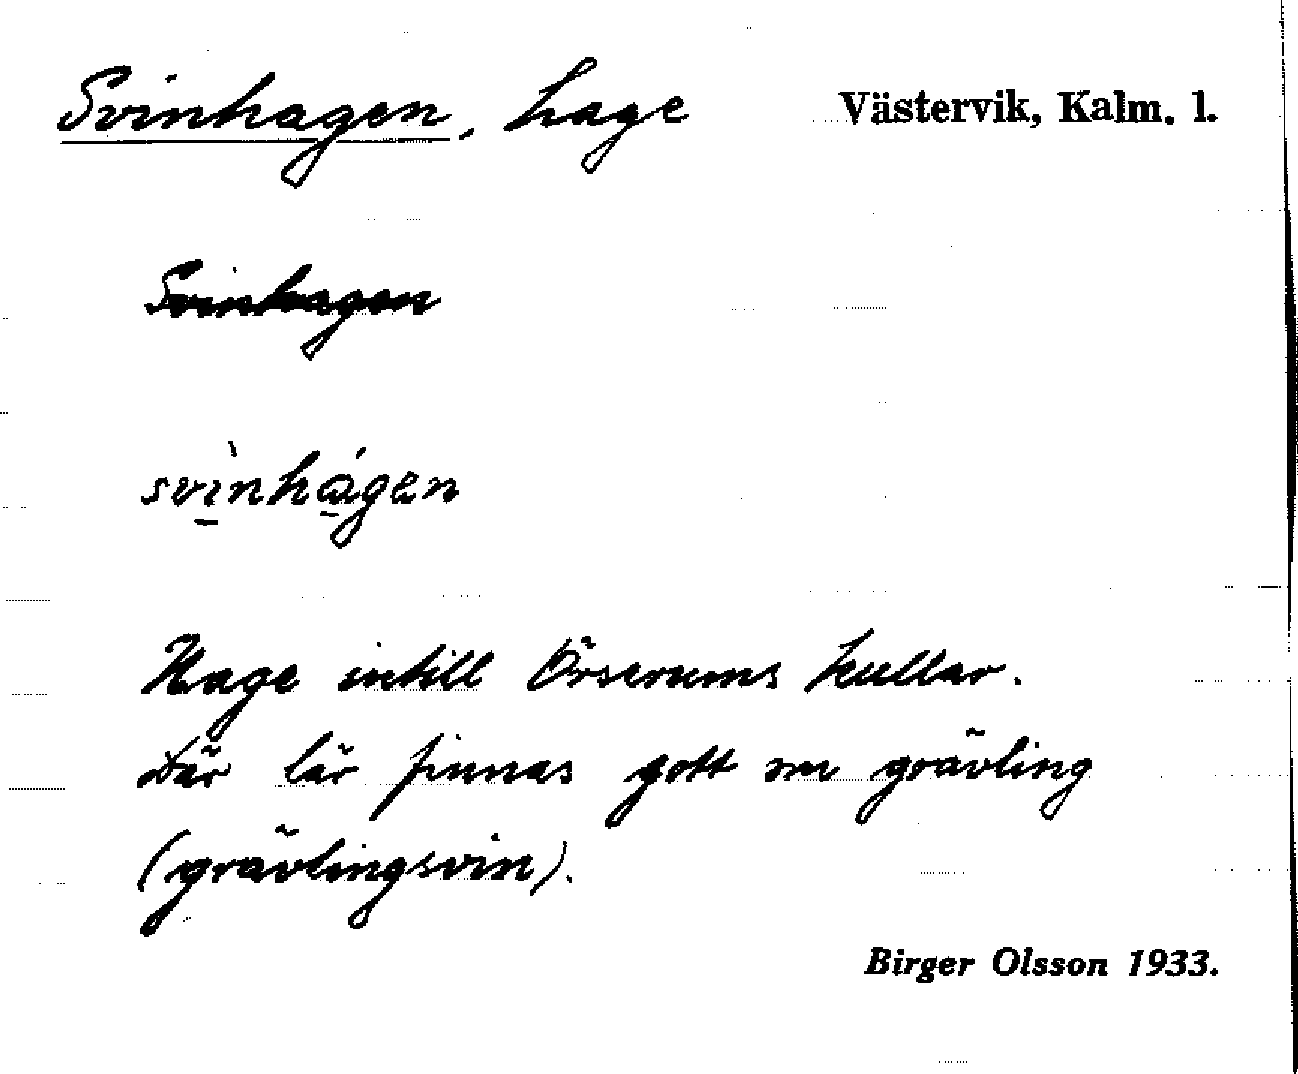 Svinhagen, hage Västervik, Kalm. l.
Svinhagen
svì̱nhá̱gen
Hage intill Örserums kullar.
Där lär finnas gott om grävling
(grävlingsvin).
Birger Olsson 1933.